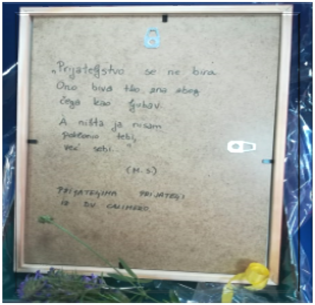 "Prijateljstvo se ne bira
Ono biva tko zna zbog
čega kao ljubav.
A ništa ja nisam
poklonio tebi,
već sebi."
(M. S)
PRIJATELJIMA PRIJATELJI
IZ DV CALIMERO.